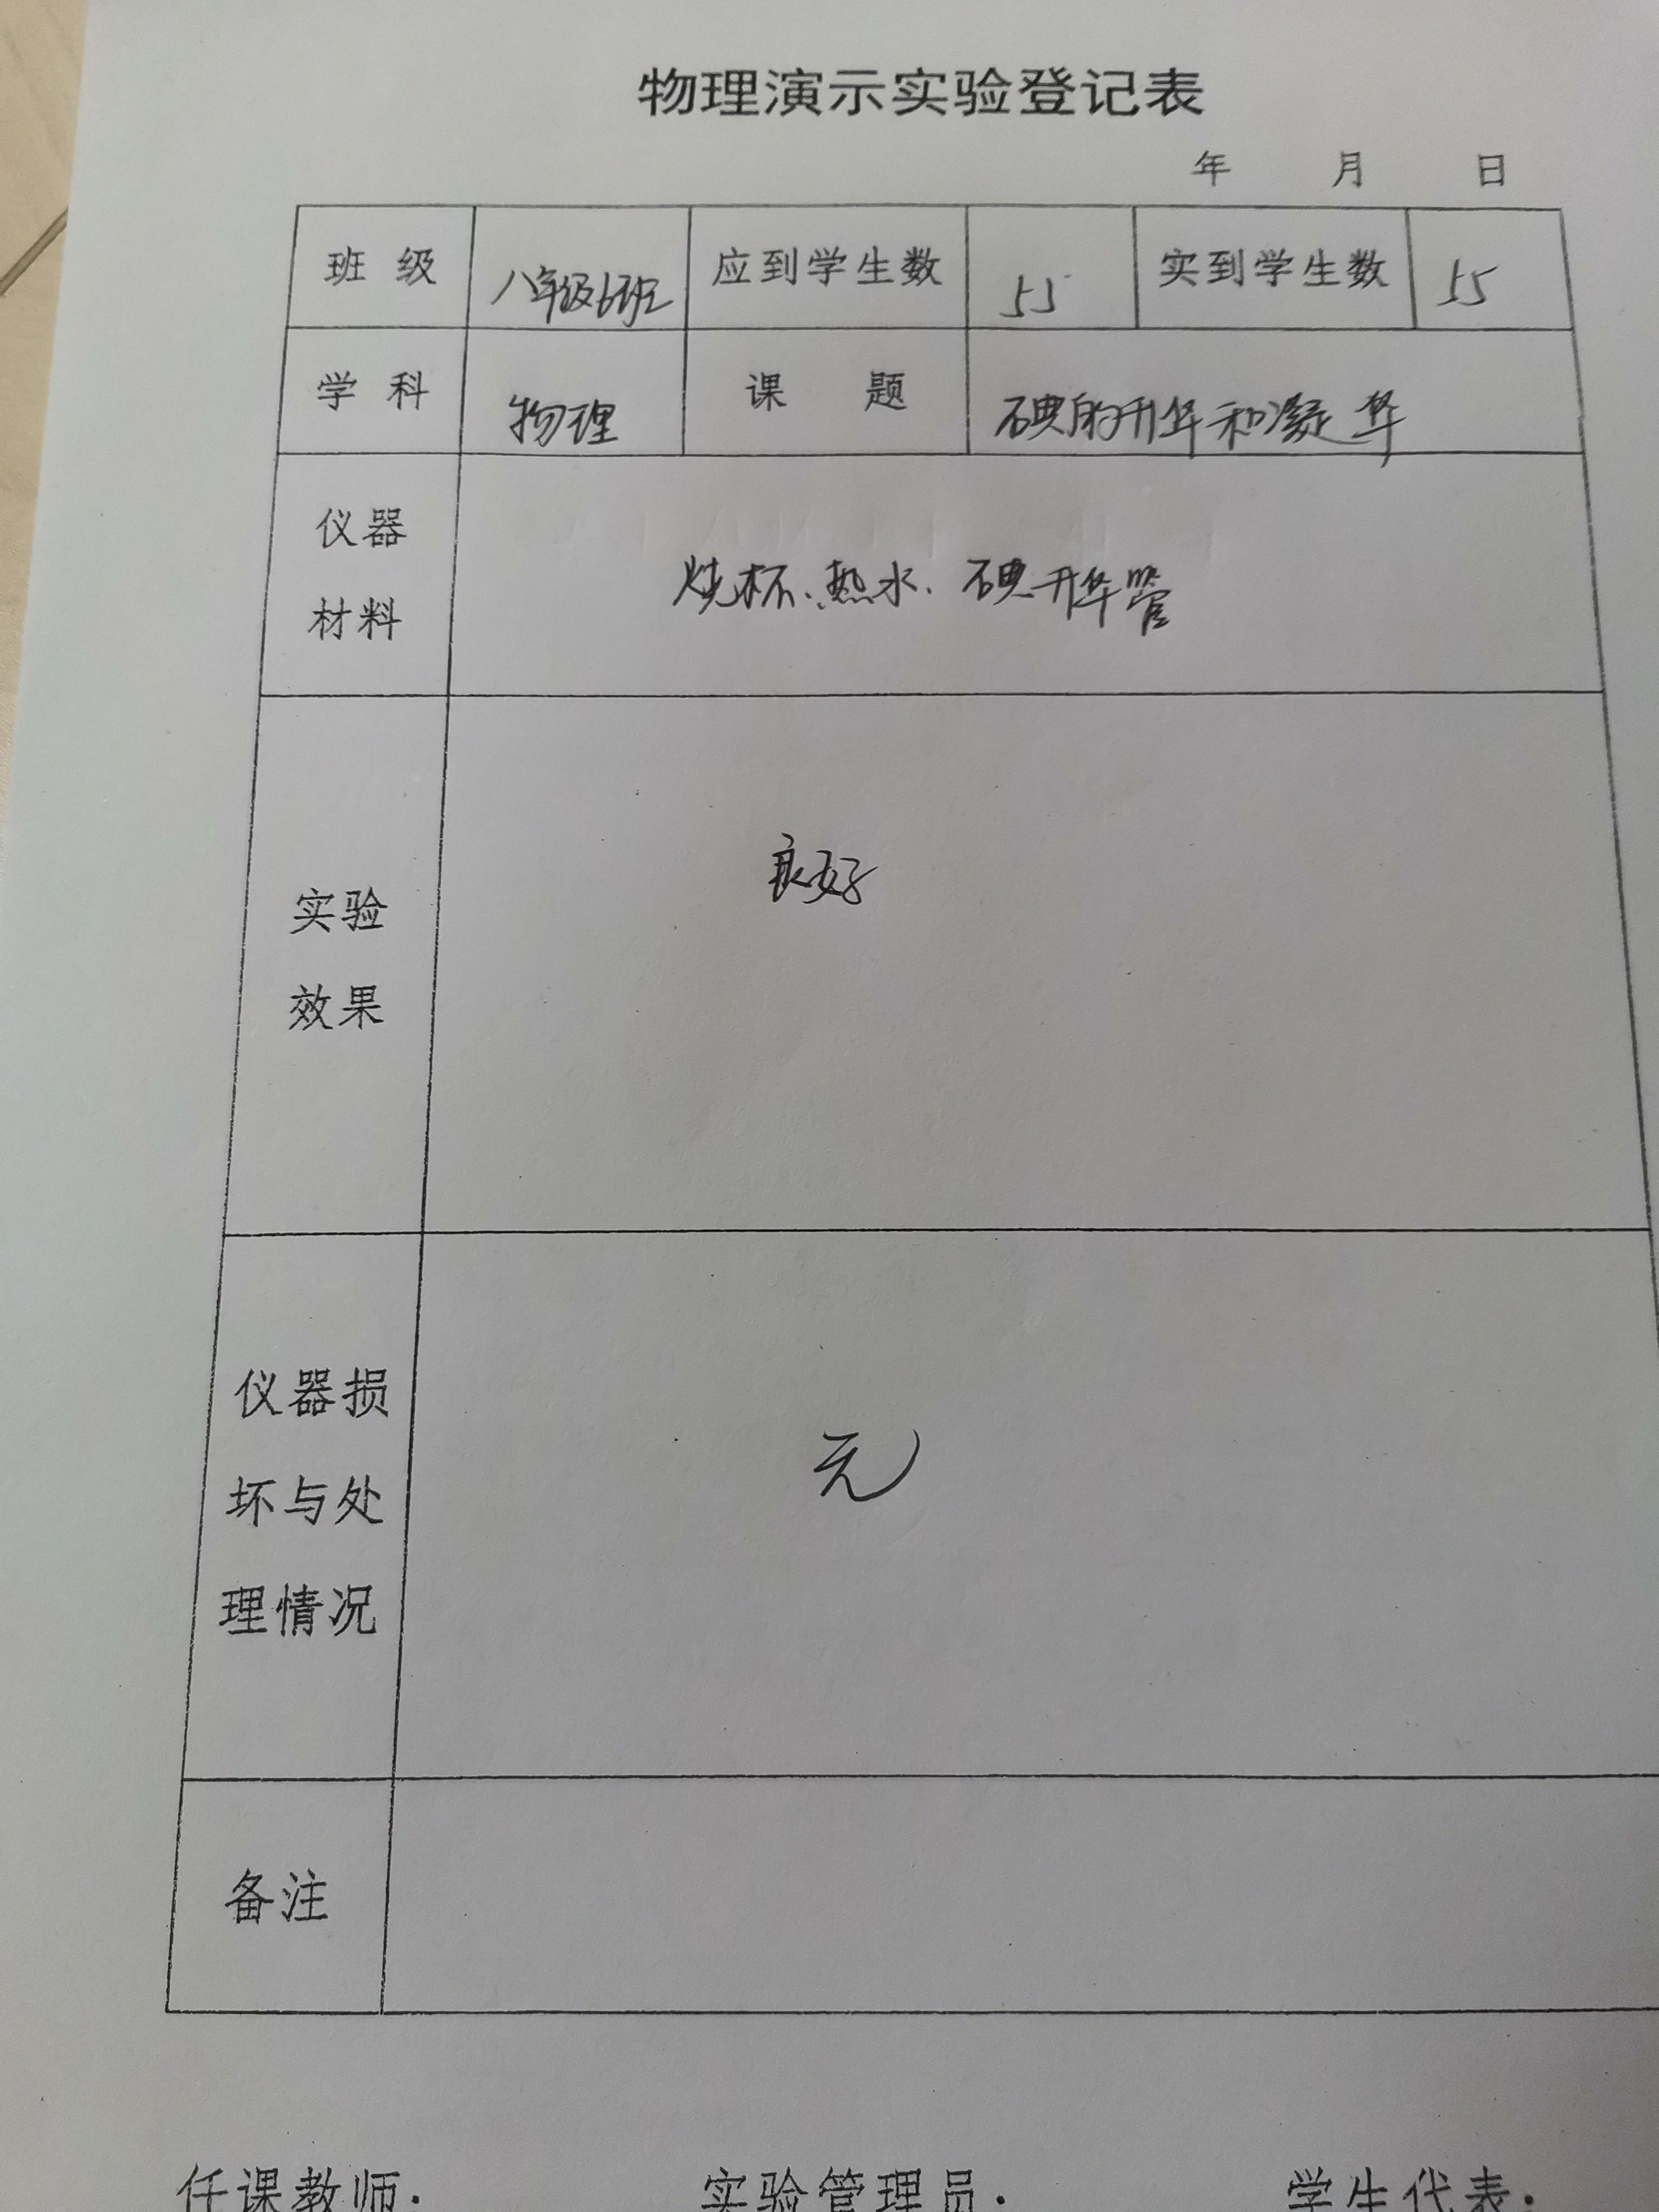 物理演示实验登记表
年 月 日
班 级 八年级6班 应到学生数 55 实到学生数 55
学 科 物理 课 题 碘的升华和凝华
仪器
材料
烧杯、热水、碘升华管
实验
效果
良好
仪器损
坏与处
理情况
无
备注
任课教师: 实验管理员: 学生代表: